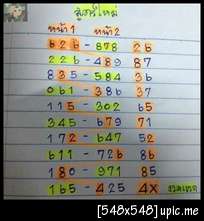 สูตรใหม่
หน้า1 หน้า2
626 - 878 26
226 - 489 87
835 - 584 36
061 - 386 37
115 - 302 65
345 - 679 71
172 - 647 52
611 - 726 86
180 - 971 85
165 - 425 4X
[548x548] upic.me